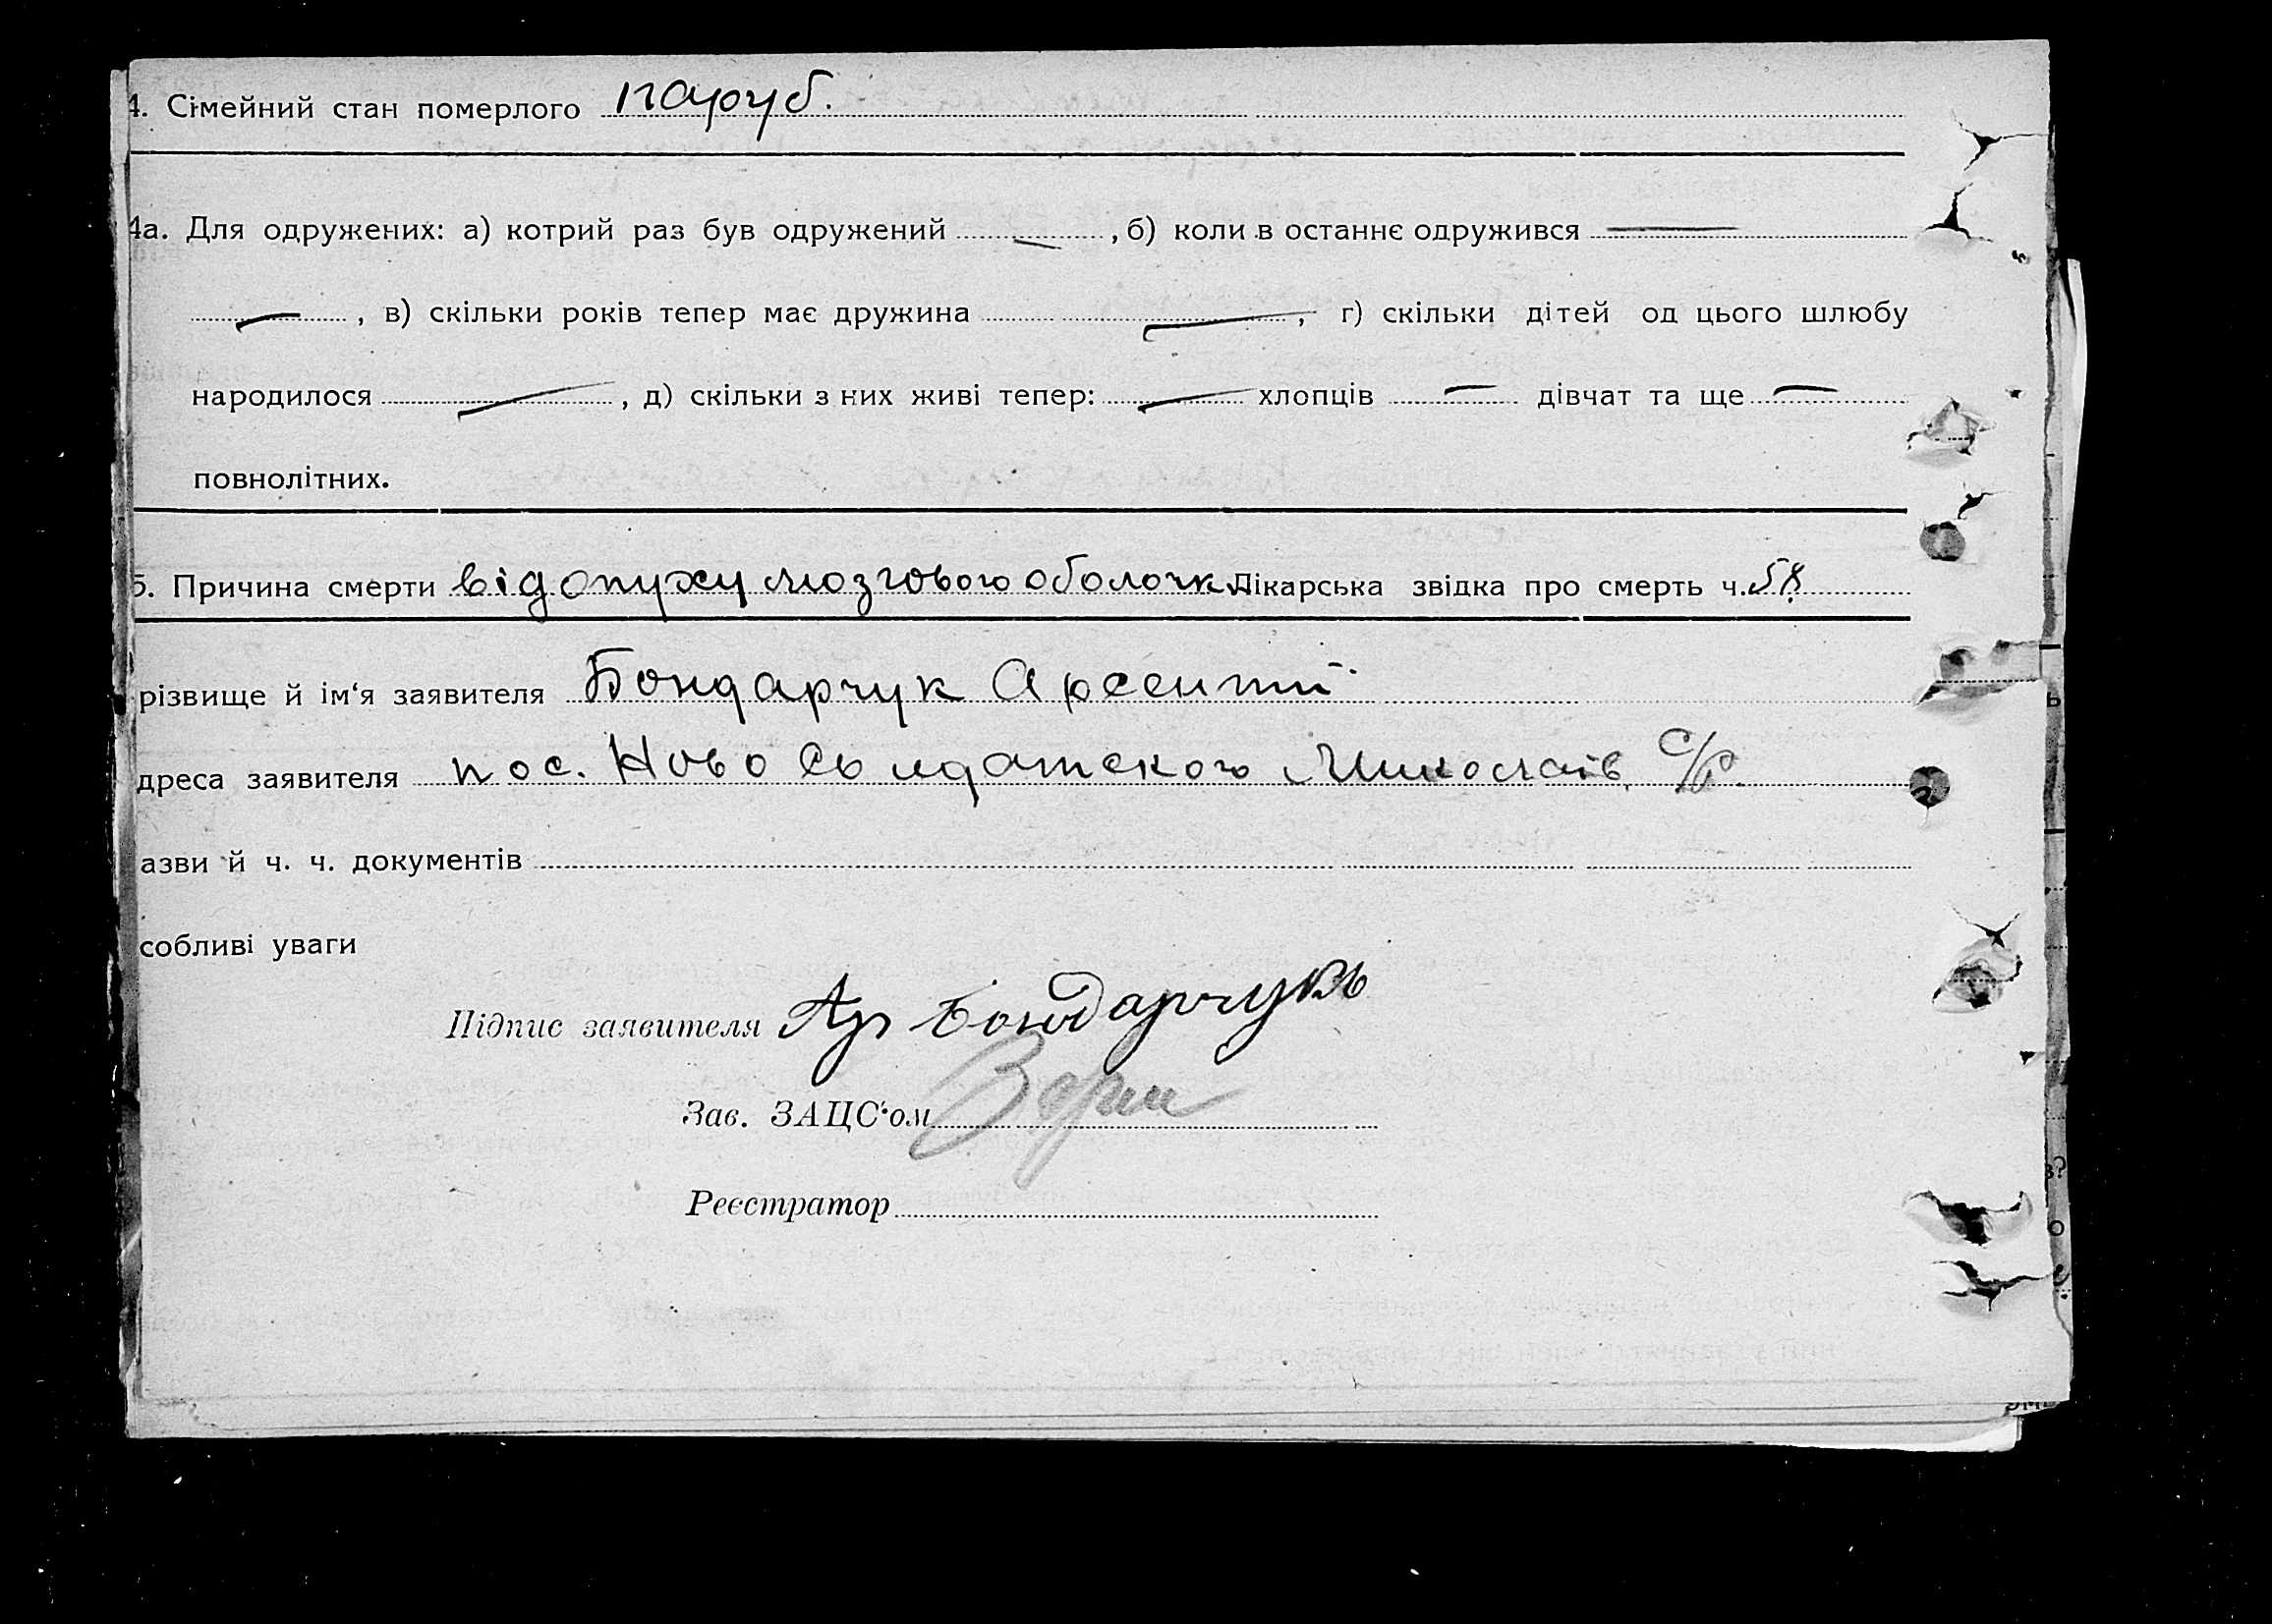 4. Сімейний стан померлого паруб.
4а. Для одружених: а) котрий раз був одружений — , б) коли в останнє одружився —
— , в) скільки років тепер має дружина — , г) скільки дітей од цього шлюбу
народилося — , д) скільки з них живі тепер: — хлопців — дівчат та ще —
повнолітних.
5. Причина смерти від опуху мозгового оболочк Лікарська звідка про смерть ч. 58
різвище й ім‘я заявителя Бондарчук Арсентій
дреса заявителя пос. Ново Солдатского Миколаїв. С/Р.
азви й ч. ч. документів
собливі уваги
Підпис заявителя Ар Бондарчукъ
Зав. ЗАЦС‘ом
Реєстратор